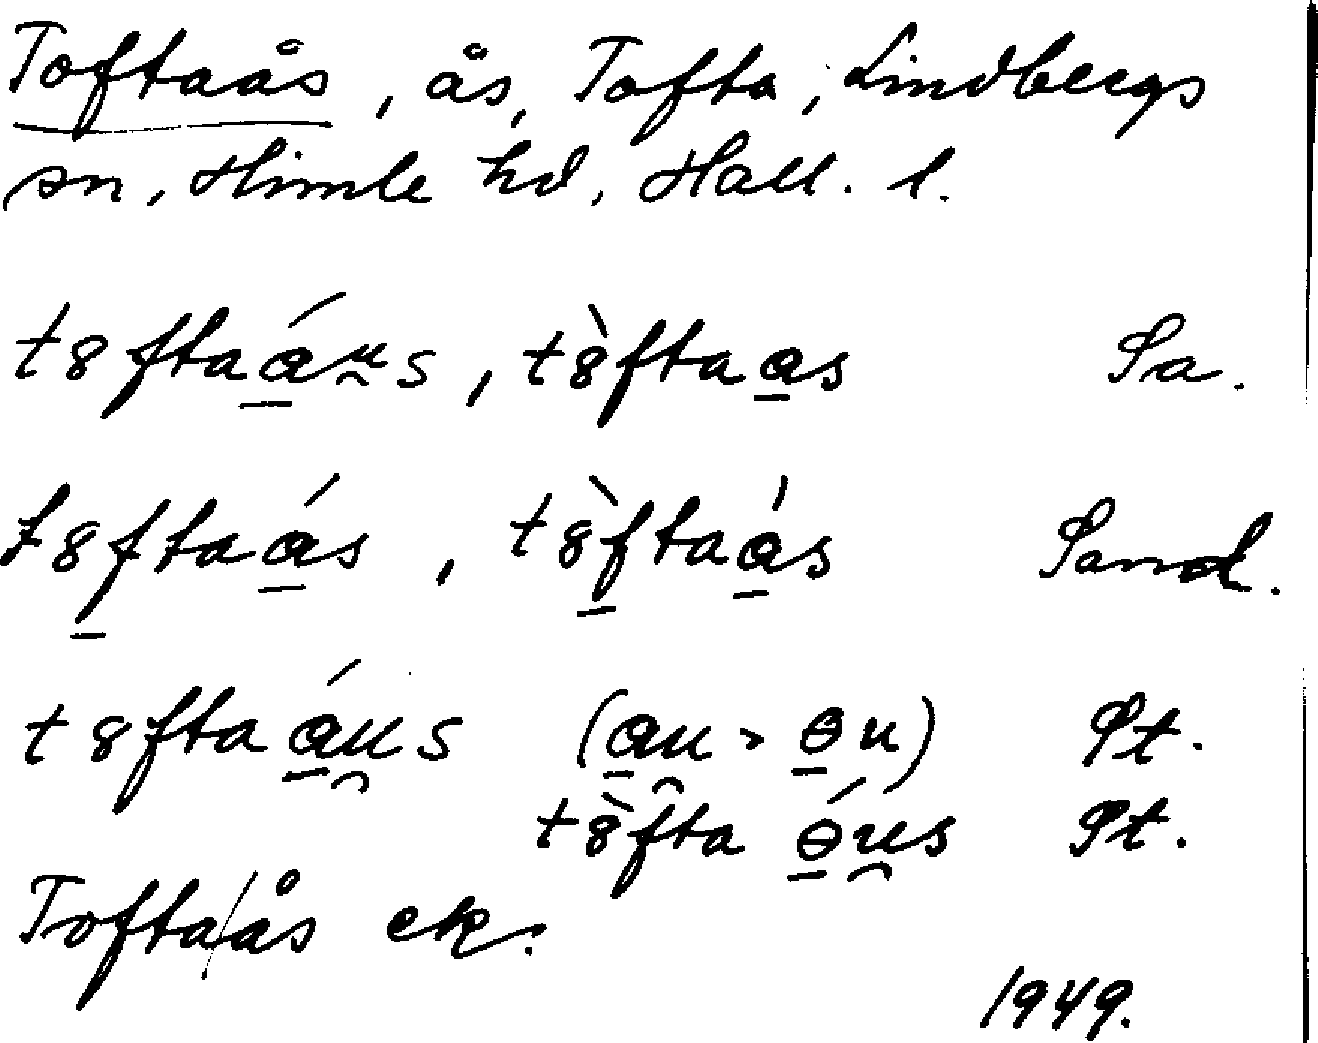 Toftaås, ås, Tofta, Lindbergs
sn, Himle hd, Hall. l.
t8ftaá̱u̯s, t8̀fta̱as Sa.
t8f̱taá̱s, t8̀f̱taá̱s Sand.
t8ftaá̱u̯s (a̱u̯ > ɵ̱u) Pt.
t8̀fta ɵ̱́u̯s Pt.
Tofta/ås ek.
1949.